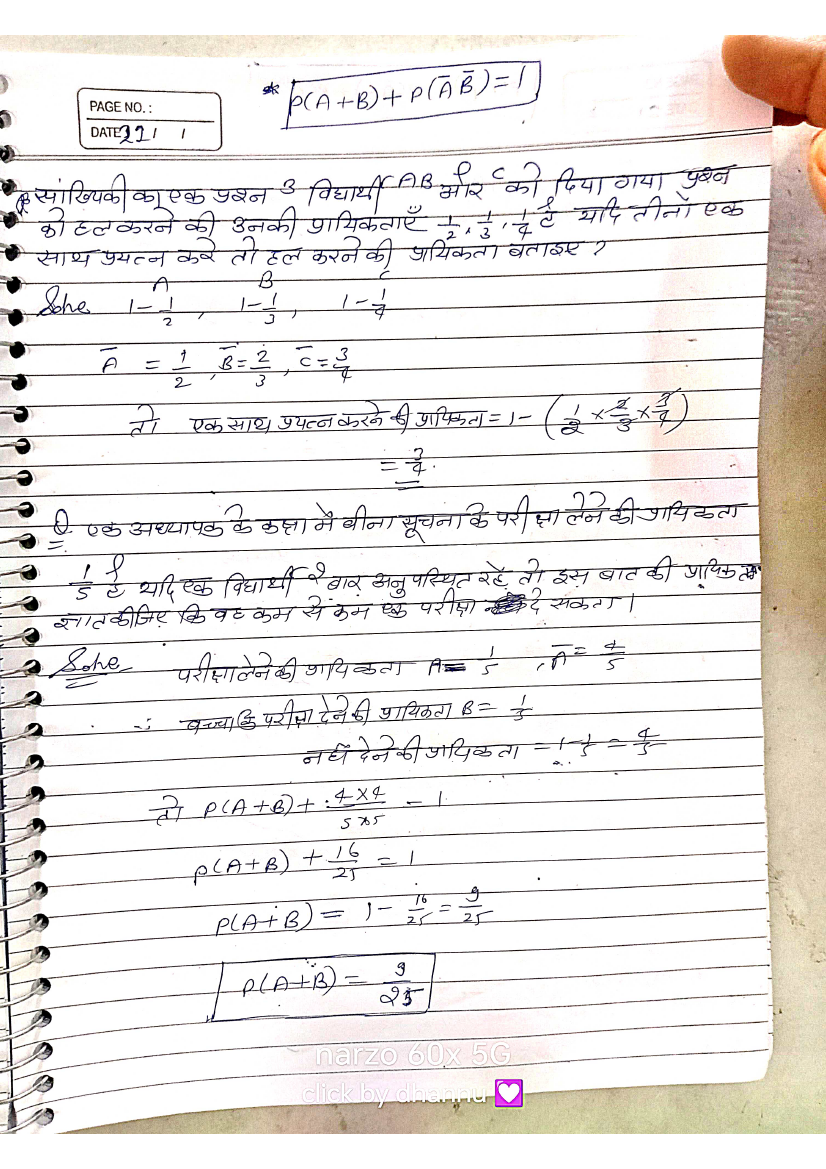 * P(A+B)+P(A̅ B̅)=1
PAGE NO. :
DATE 22 / /
Q सांख्यिकी का एक प्रश्न 3 विद्यार्थी A B और C को दिया गया प्रश्न
को हल करने की उनकी प्रायिकताएँ 1/2, 1/3, 1/4 है यदि तीनों एक
साथ प्रयत्न करे तो हल करने की प्रायिकता बताइए ?
A B C
Solve 1-1/2, 1-1/3, 1-1/4
A̅ = 1/2, B̅=2/3, C̅=3/4
तो एक साथ प्रयत्न करने की प्रायिकता = 1- (1/2 × 2/3 × 3/4)
= 3/4.
Q एक अध्यापक के कक्षा में बीना सूचना के परीक्षा लेने की प्रायिकता
1/5 है यदि एक विद्यार्थी 2 बार अनुपस्थित रहें तो इस बात की प्रायिकता
ज्ञात कीजिए कि वह कम से कम एक परीक्षा दे सकता ।
Solve परीक्षा लेने की प्रायिकता A= 1/5, A̅= 4/5
∴ बच्चा के परीक्षा देने की प्रायिकता B= 1/5
नहीं देने की प्रायिकता = 1-1/5 = 4/5
तो P(A+B)+ 4×4/5×5 - 1
P(A+B) + 16/25 = 1
P(A+B) = 1- 16/25 = 9/25
P(A+B) = 9/25
narzo 60x 5G
click by dhannu 💟